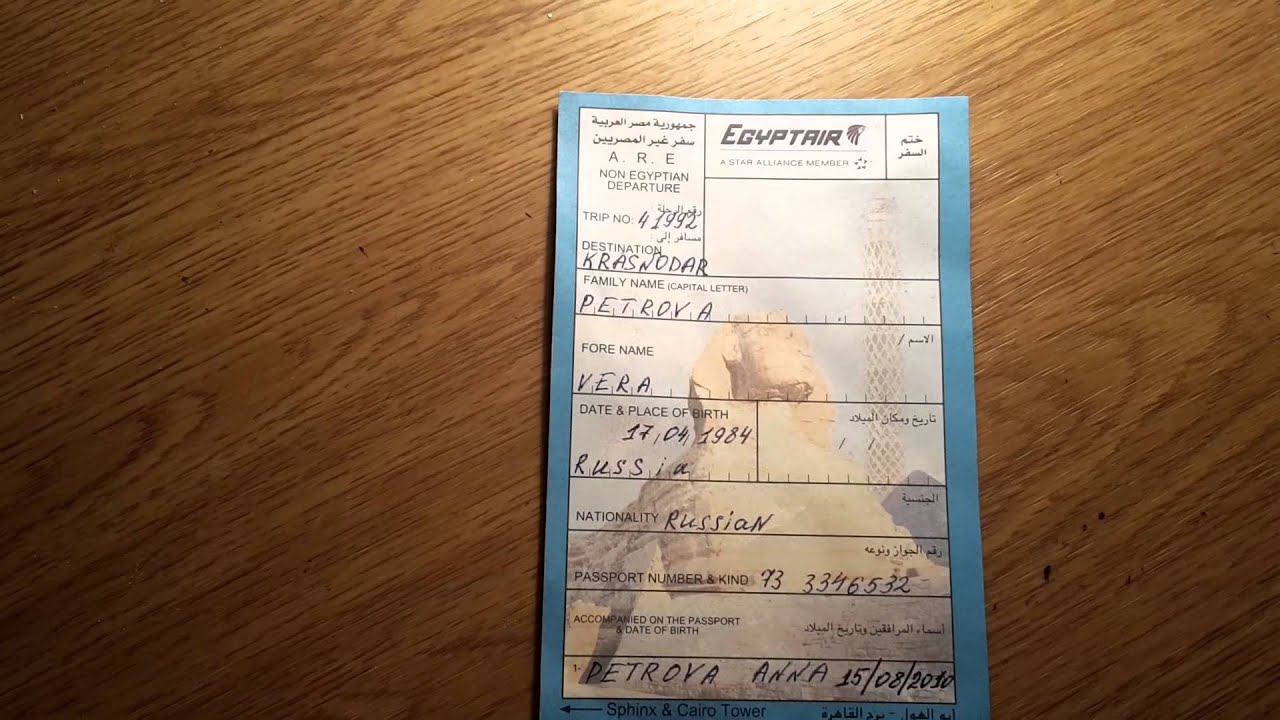 جمهورية مصر العربية
سفر غير المصريين
A. R. E
NON EGYPTIAN
DEPARTURE
EGYPTAIR
A STAR ALLIANCE MEMBER
ختم
السفر
رقم الرحلة :
TRIP NO: 41992
مسافر إلى :
DESTINATION
KRASNODAR
FAMILY NAME (CAPITAL LETTER)
PETROVA
الاسم /
FORE NAME
VERA
DATE & PLACE OF BIRTH
تاريخ ومكان الميلاد
17,04,1984
/ /
Russia
الجنسية
NATIONALITY RussiaN
رقم الجواز ونوعه
PASSPORT NUMBER & KIND 73 3346532
ACCOMPANIED ON THE PASSPORT
& DATE OF BIRTH
أسماء المرافقين وتاريخ الميلاد
1- PETROVA ANNA 15/08/2010
Sphinx & Cairo Tower
أبو الهول - برج القاهرة